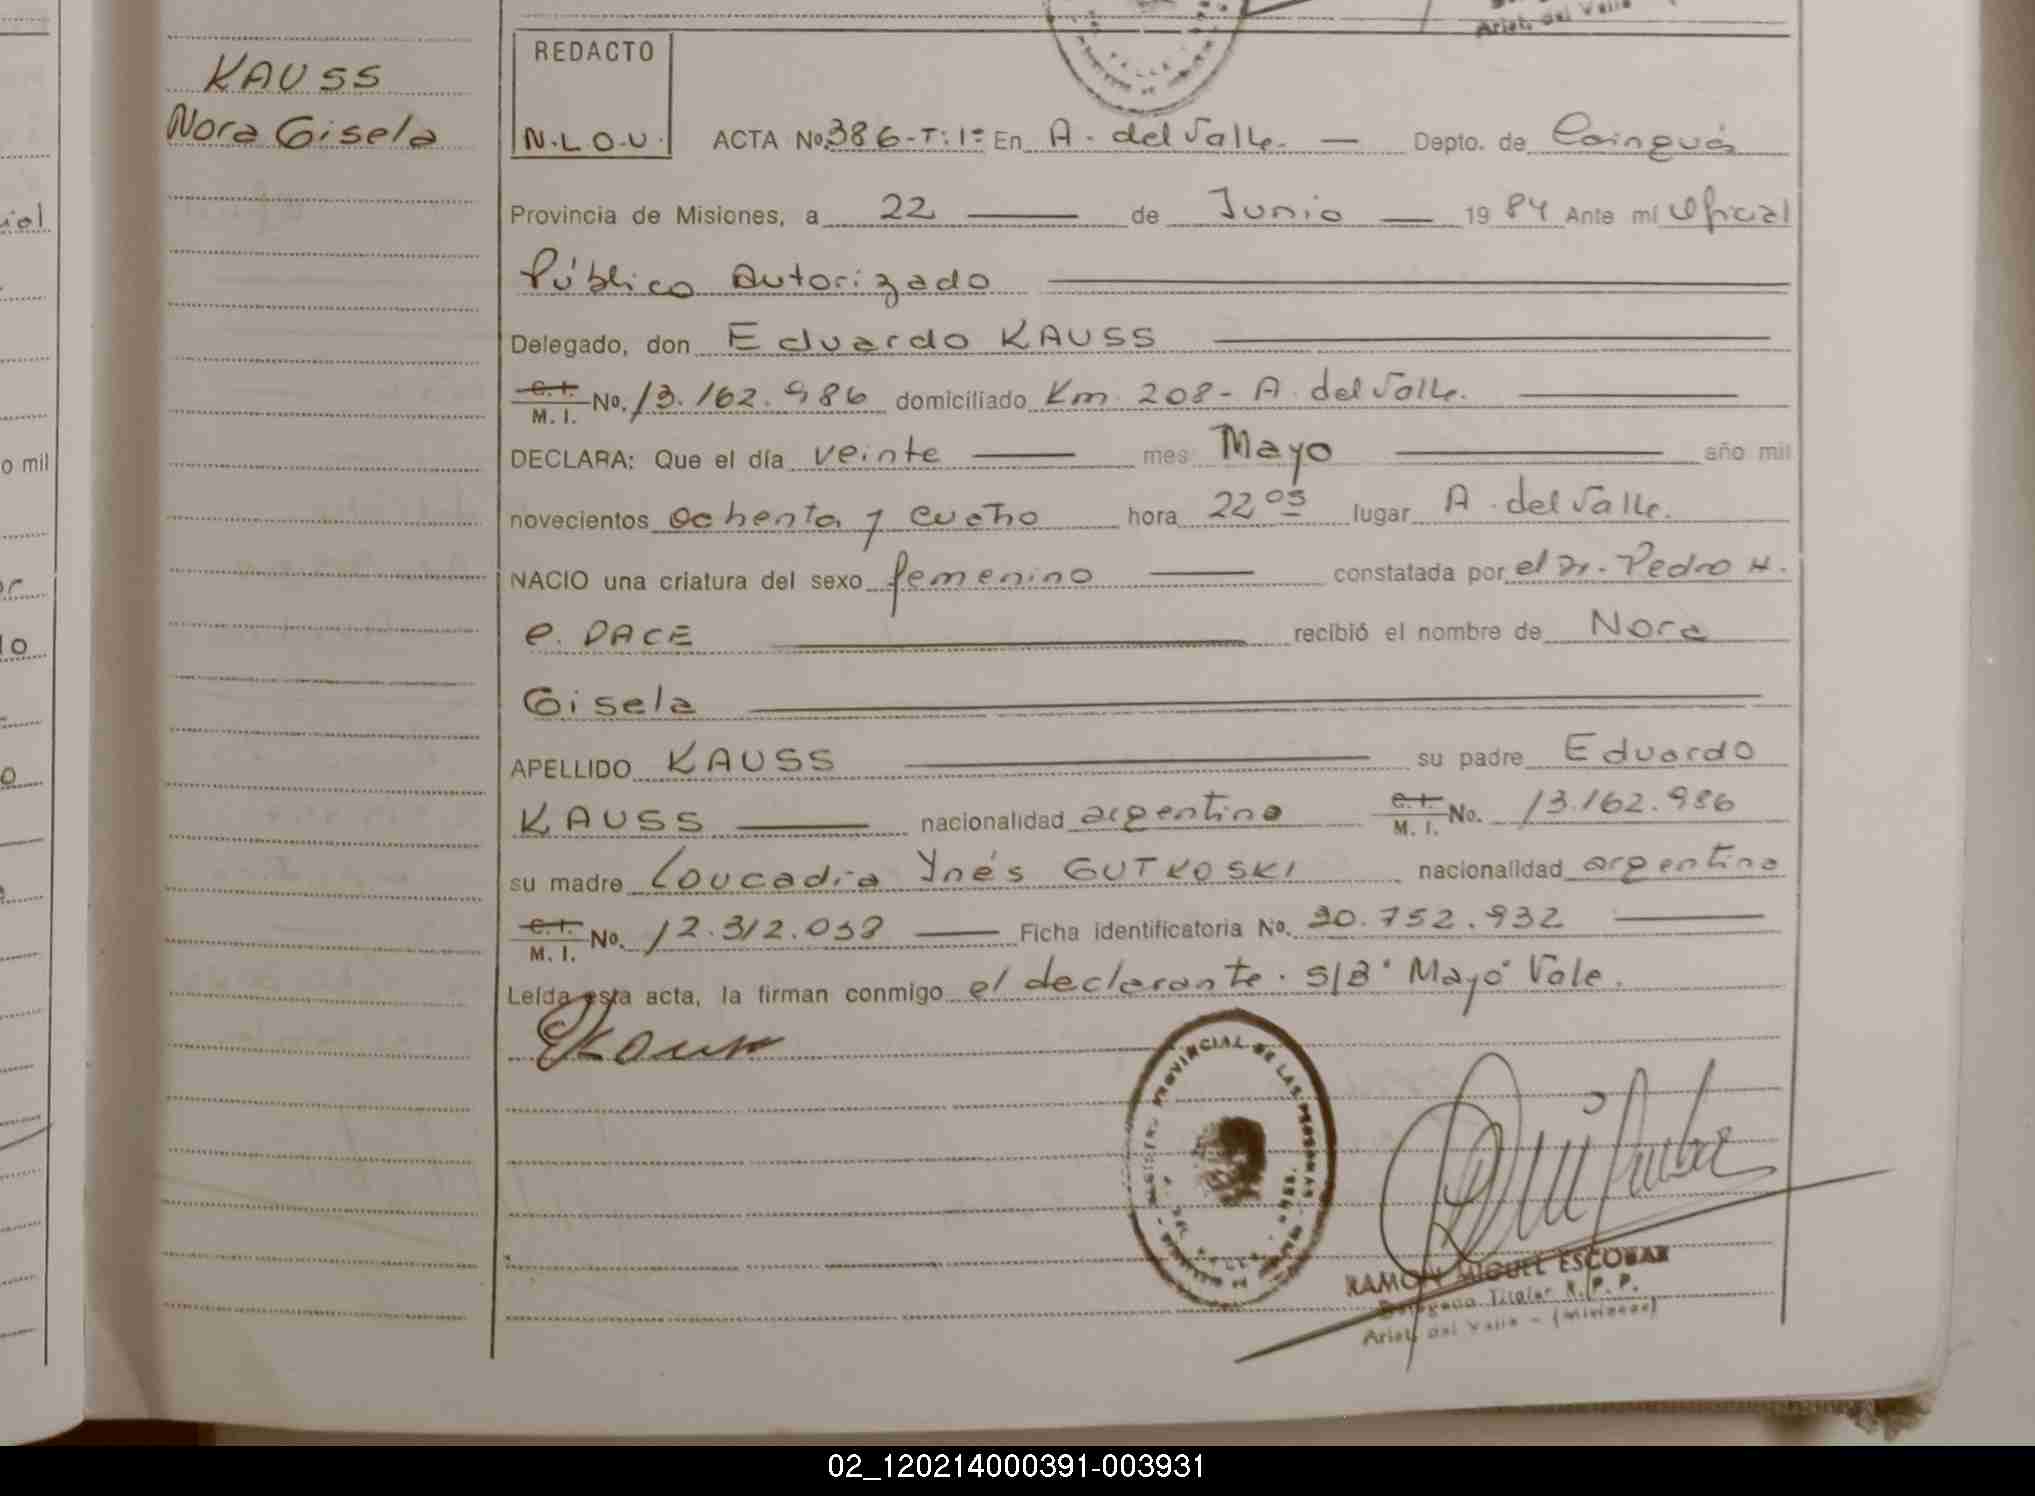 Arist. del Valle
KAUSS
Nora Gisela
REDACTO
N.L.O.V.
ACTA No. 386-T:1º En A. del Valle. — Depto. de Cainguás
Provincia de Misiones, a 22 — de Junio — 1984 Ante mí Oficial
Público Autorizado
Delegado, don Eduardo KAUSS
C.I. M.I. No. 13.162.986 domiciliado Km. 208 - A. del Valle.
DECLARA: Que el día veinte — mes Mayo — año mil
novecientos ochenta y cuatro hora 22 05 lugar A. del Valle.
NACIO una criatura del sexo femenino — constatada por el Dr. Pedro H.
e. DACE — recibió el nombre de Nora
Gisela
APELLIDO KAUSS — su padre Eduardo
KAUSS — nacionalidad argentina C.I. M.I. No. 13.162.986
su madre Loucadia Ynés GUTKOSKI nacionalidad argentina
C.I. M.I. No. 12.312.039 — Ficha identificatoria No. 30.752.932
Leída esta acta, la firman conmigo el declarante. S/B: Mayo Vale.
EKauss
REGISTRO PROVINCIAL DE LAS PERSONAS
RAMON MIGUEL ESCOBAR
Delegado Titular R.P.P.
Arist. del Valle - (Misiones)
o mil
02_120214000391-003931